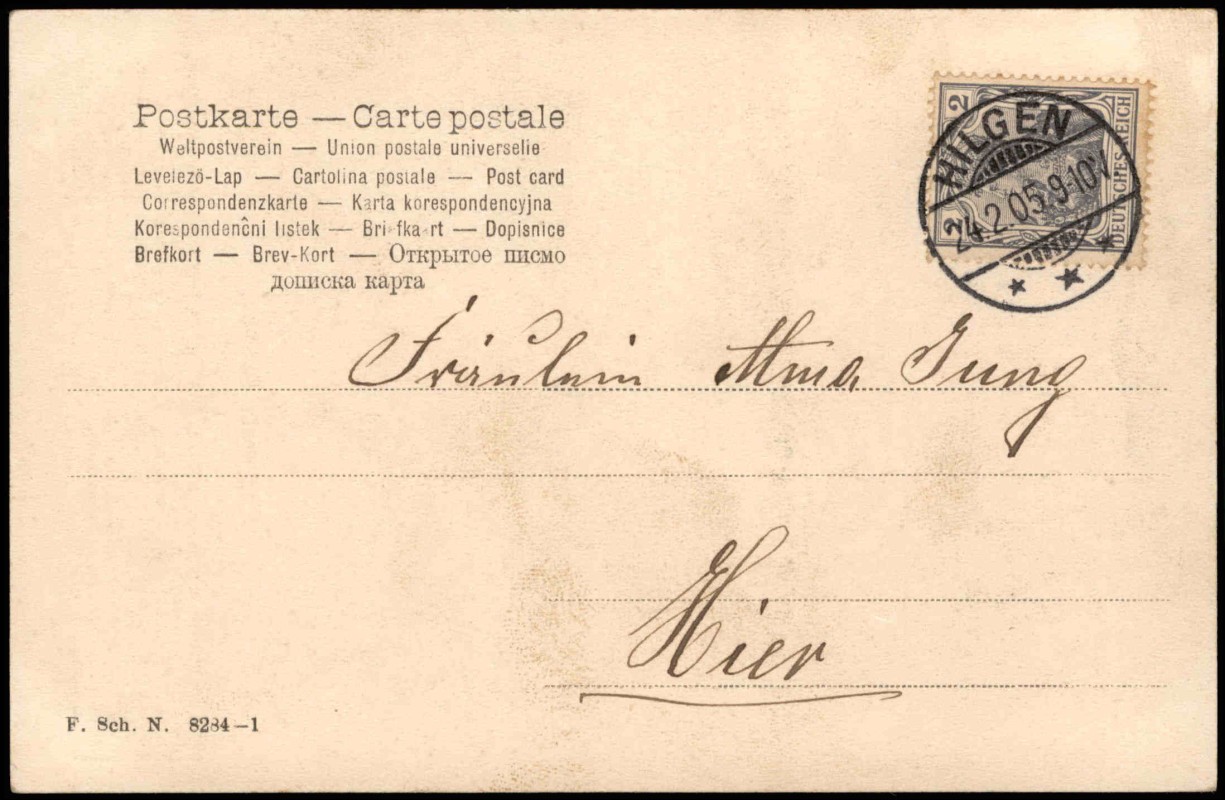 Postkarte — Carte postale
Weltpostverein — Union postale universelle
Levelezö-Lap — Cartolina postale — Post card
Correspondenzkarte — Karta korespondencyjna
Korespondenĉni listek — Briefkaart — Dopisnice
Brefkort — Brev-Kort — Открытое письмо
дописка карта
2
2
DEUTSCHES REICH
HILGEN
24.2.05.9-10V.
Fräulein Jung
Hier
F. Sch. N. 8284—1